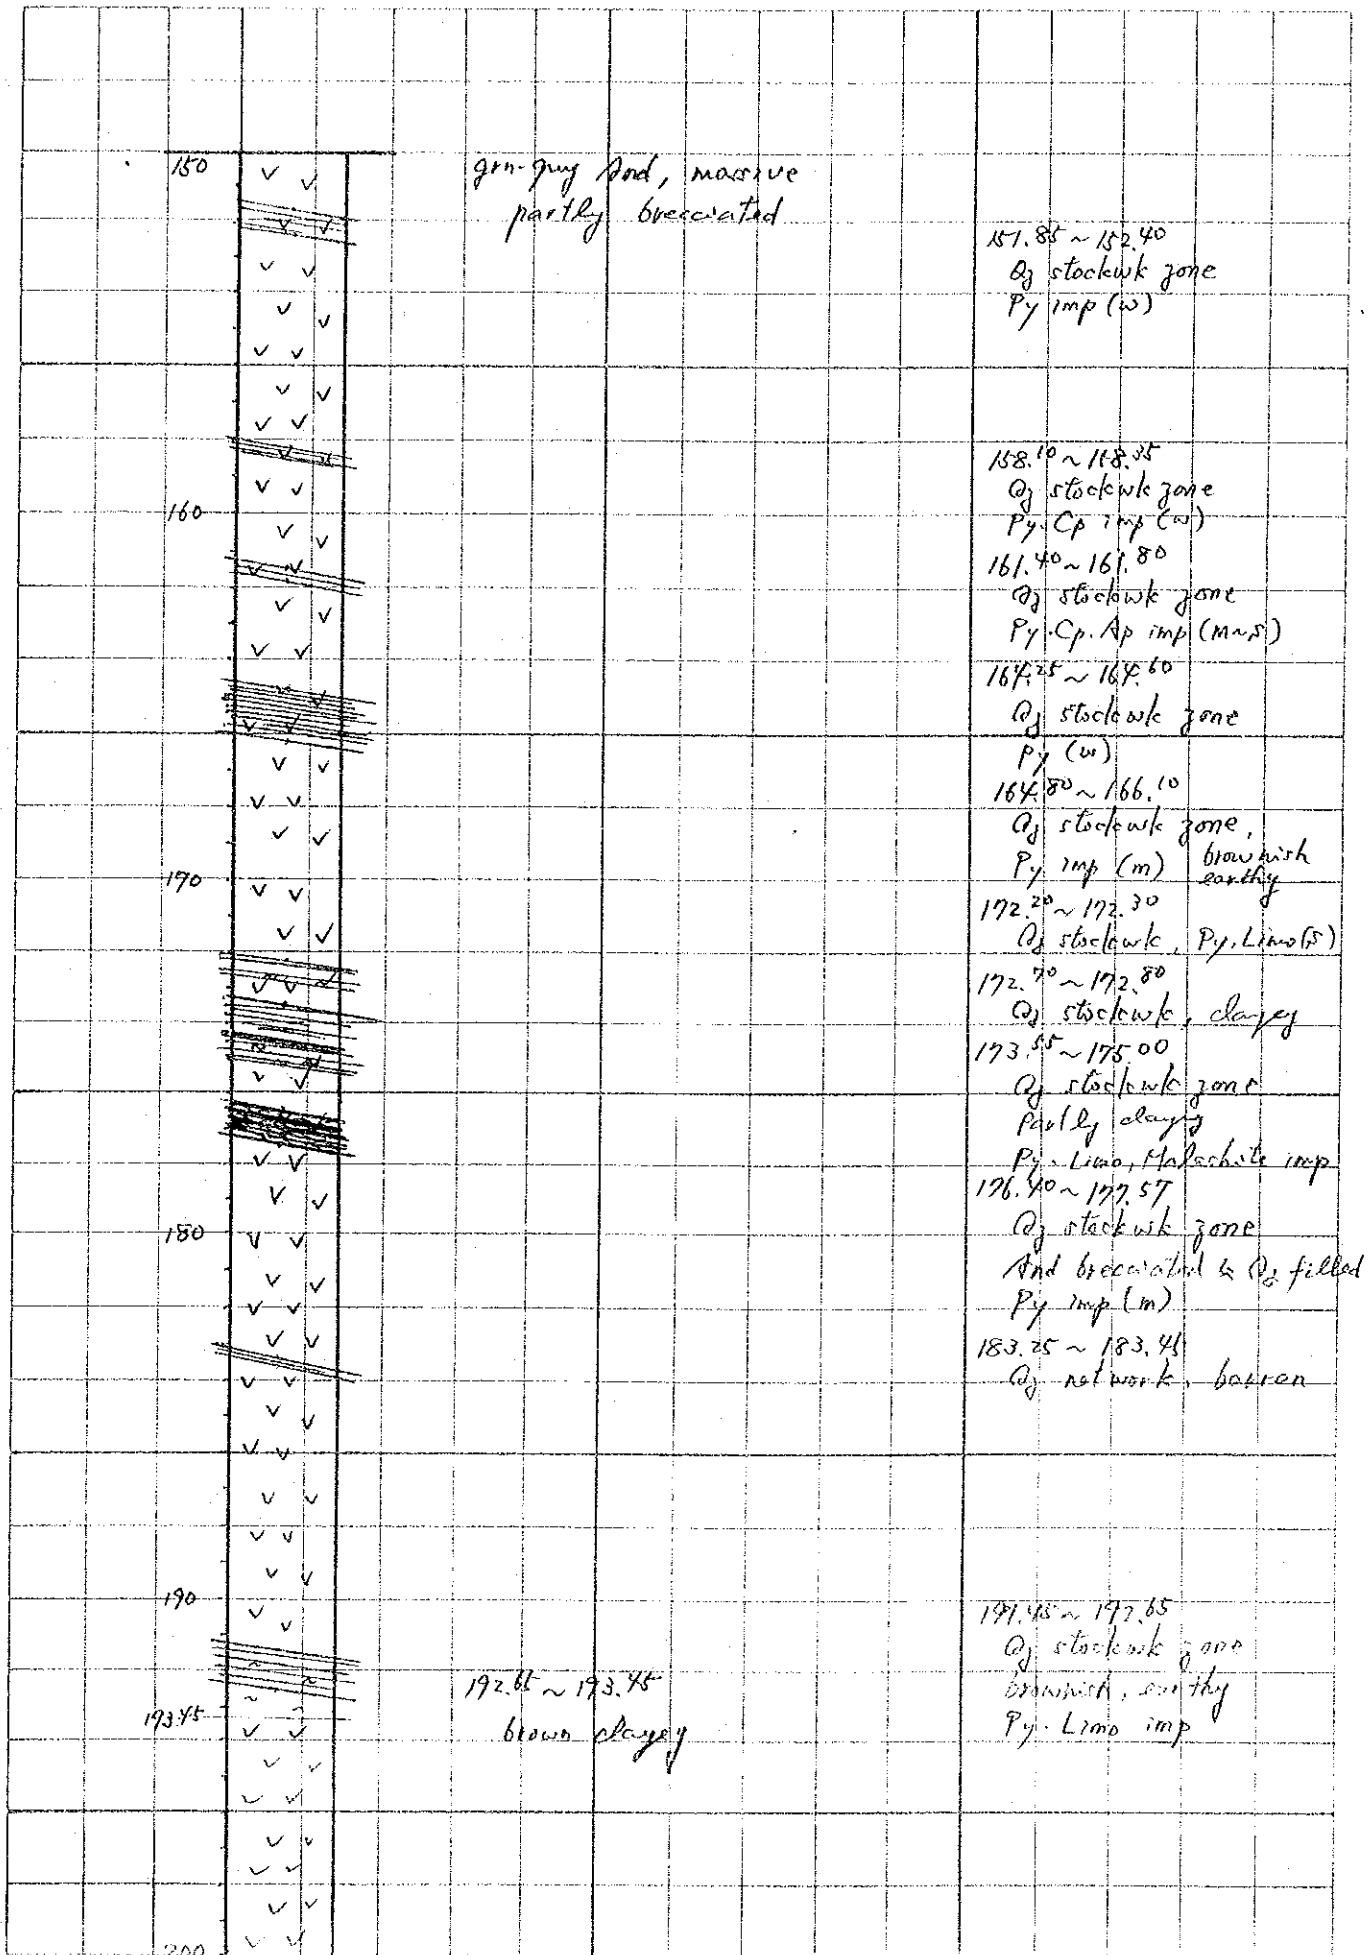 150
grn-gry And, massive
partly brecciated
151.85 ~ 152.40
Qz stockwk zone
Py imp (w)
158.10 ~ 158.35
Qz stockwk zone
160
Py. Cp imp (w)
161.40 ~ 161.80
Qz stockwk zone
Py. Cp. Ap imp (m~s)
164.25 ~ 164.60
Qz stockwk zone
Py (w)
164.80 ~ 166.10
Qz stockwk zone,
Py imp (m) brownish
earthy
170
172.20 ~ 172.30
Qz stockwk, Py. Limo (s)
172.70 ~ 172.80
Qz stockwk, clayey
173.55 ~ 175.00
Qz stockwk zone
Partly clayey
Py. Limo, Malachite imp
176.40 ~ 177.57
180
Qz stockwk zone
And brecciated & Qz filled
Py imp (m)
183.25 ~ 183.45
Qz network, barren
190
191.45 ~ 192.65
Qz stockwk zone
brownish, earthy
Py. Limo imp
192.65 ~ 193.45
brown clayey
193.45
200